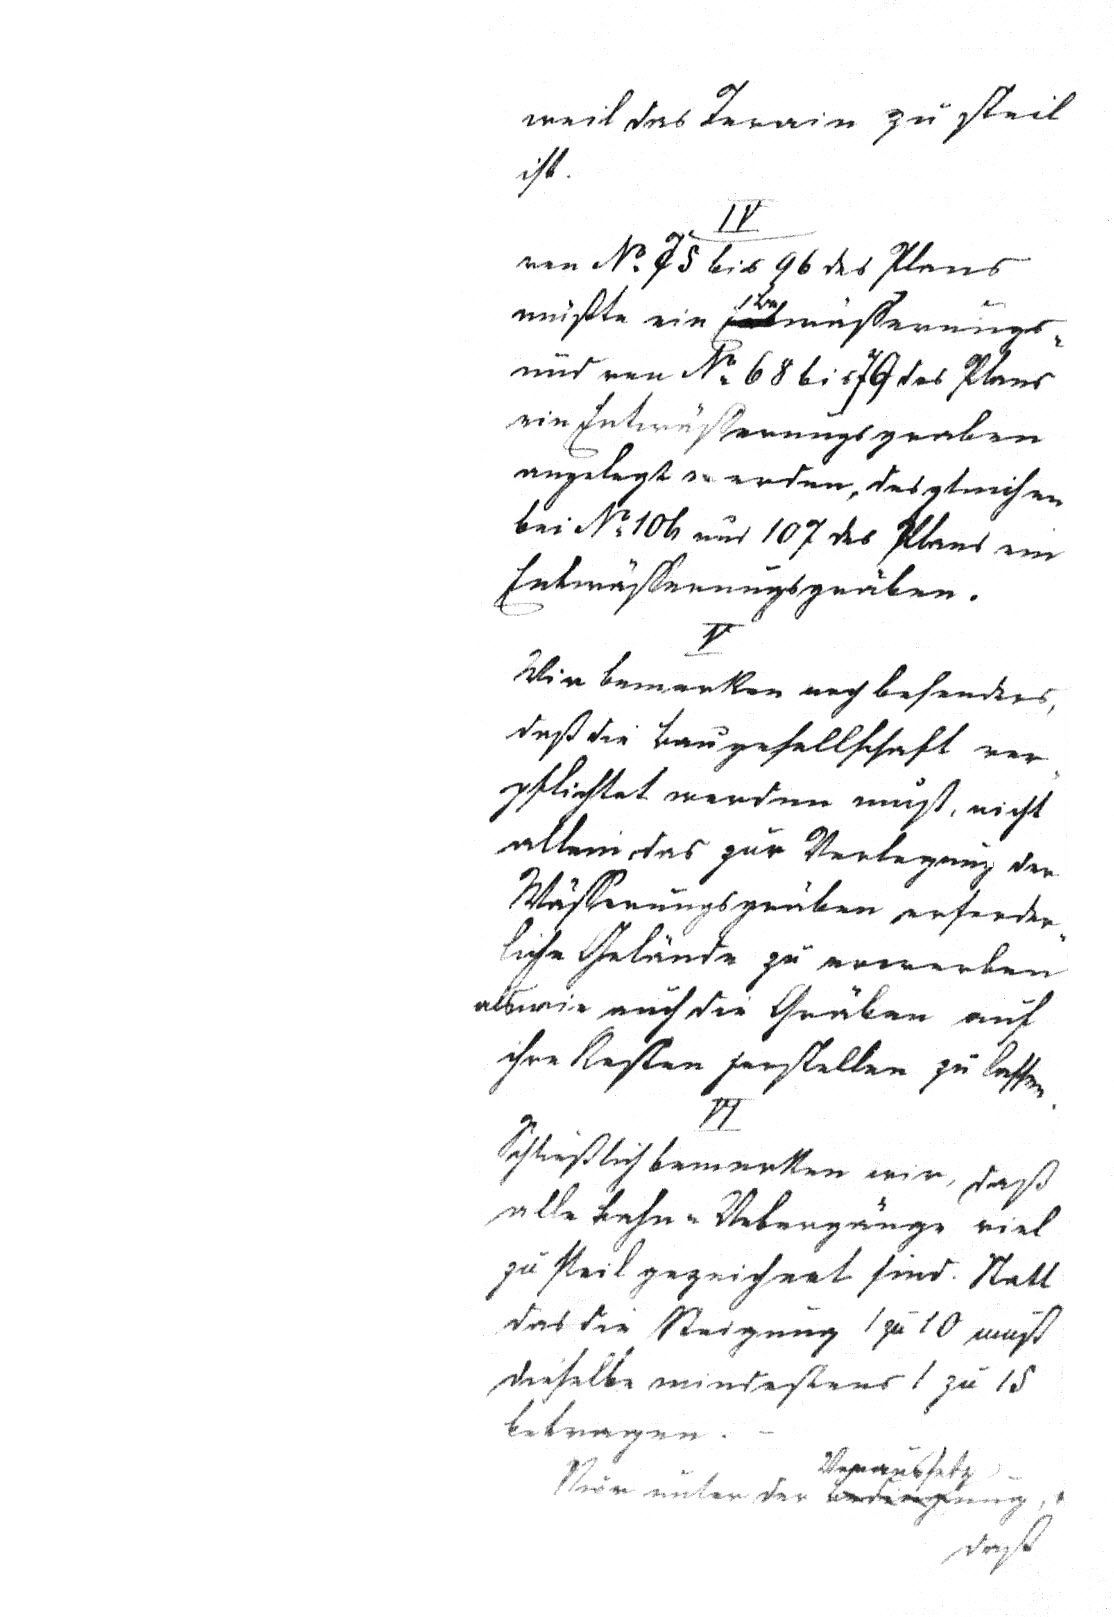 weil das Terain zu steil
ist.
IV
von No 75 bis 96 des Plans
müßte ein Bewässerungs-
und von No 68 bis 79 des Plans
ein Entwässerungsgraben
angelegt werden, desgleichen
bei No 106 und 107 des Plans ein
Entwässerungsgräben.
V
Wir bemerken noch besonders,
daß die Baugesellschaft ver-
pflichtet werden muß, nicht
allein das zur Verlegung der
Wässerungsgräben erforder-
liche Gelände zu erwerben
als wie auch die Gräben auf
ihre Kosten herstellen zu lassen.
VI
Schließlich bemerken wir, daß
alle Bahn-Uebergänge viel
zu steil gezeichnet sind. Statt
das die Steigung 1 zu 10 muß
dieselbe mindestens 1 zu 15
betragen. –
Voraussetz
Nur unter der Bedingung,
daß